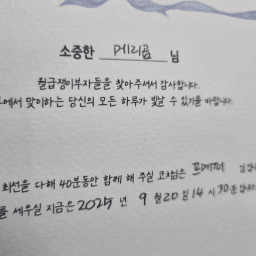 소중한 페리곰 님
월급쟁이부자들을 찾아주셔서 감사합니다.
에서 맞이하는 당신의 모든 하루가 빛날 수 있기를 바랍니다.
최선을 다해 40분동안 함께 해 주실 코치님은 프메퍼 님입니다
를 세우실 지금은 2025 년 9 월 20 일 14 시 30 분 입니다